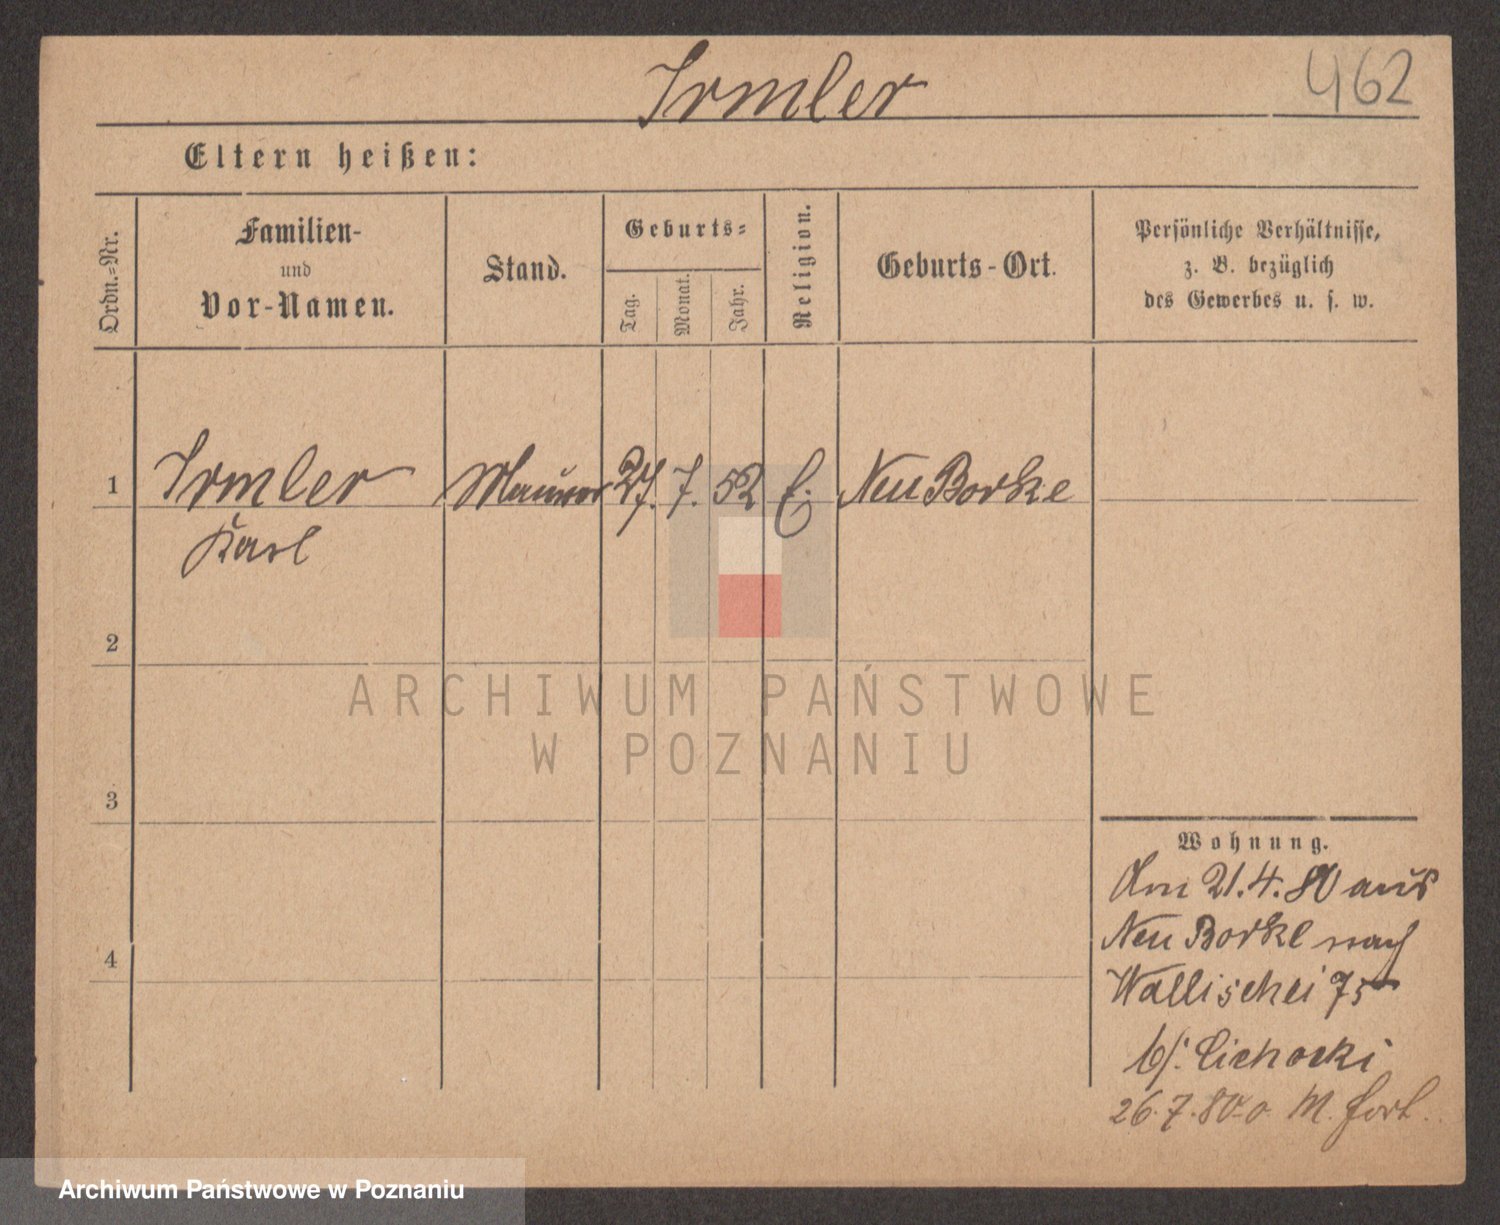 Irmler
462
Eltern heißen:
Ordn.=Nr.
Familien-
und
Vor-Namen.
Stand.
Geburts=
Tag.
Monat.
Jahr.
Religion.
Geburts-Ort.
Persönliche Verhältnisse,
z. B. bezüglich
des Gewerbes u. s. w.
1 Irmler Maurer 27. 7. 52 E. Neu Borke
Karl
2
3
4
ARCHIWUM PAŃSTWOWE
W POZNANIU
Wohnung.
Am 21.4.80 aus
Neu Borke nach
Wallischei 75
b/. Cichocki
26.7.80 o. M. fort.
Archiwum Państwowe w Poznaniu